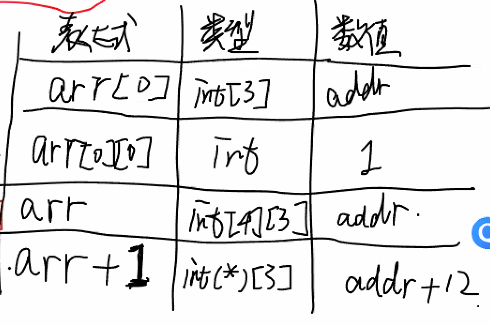 表达式 类型 数值
arr[0] int[3] addr
arr[0][0] int 1
arr int[4][3] addr.
arr+1 int(*)[3] addr+12